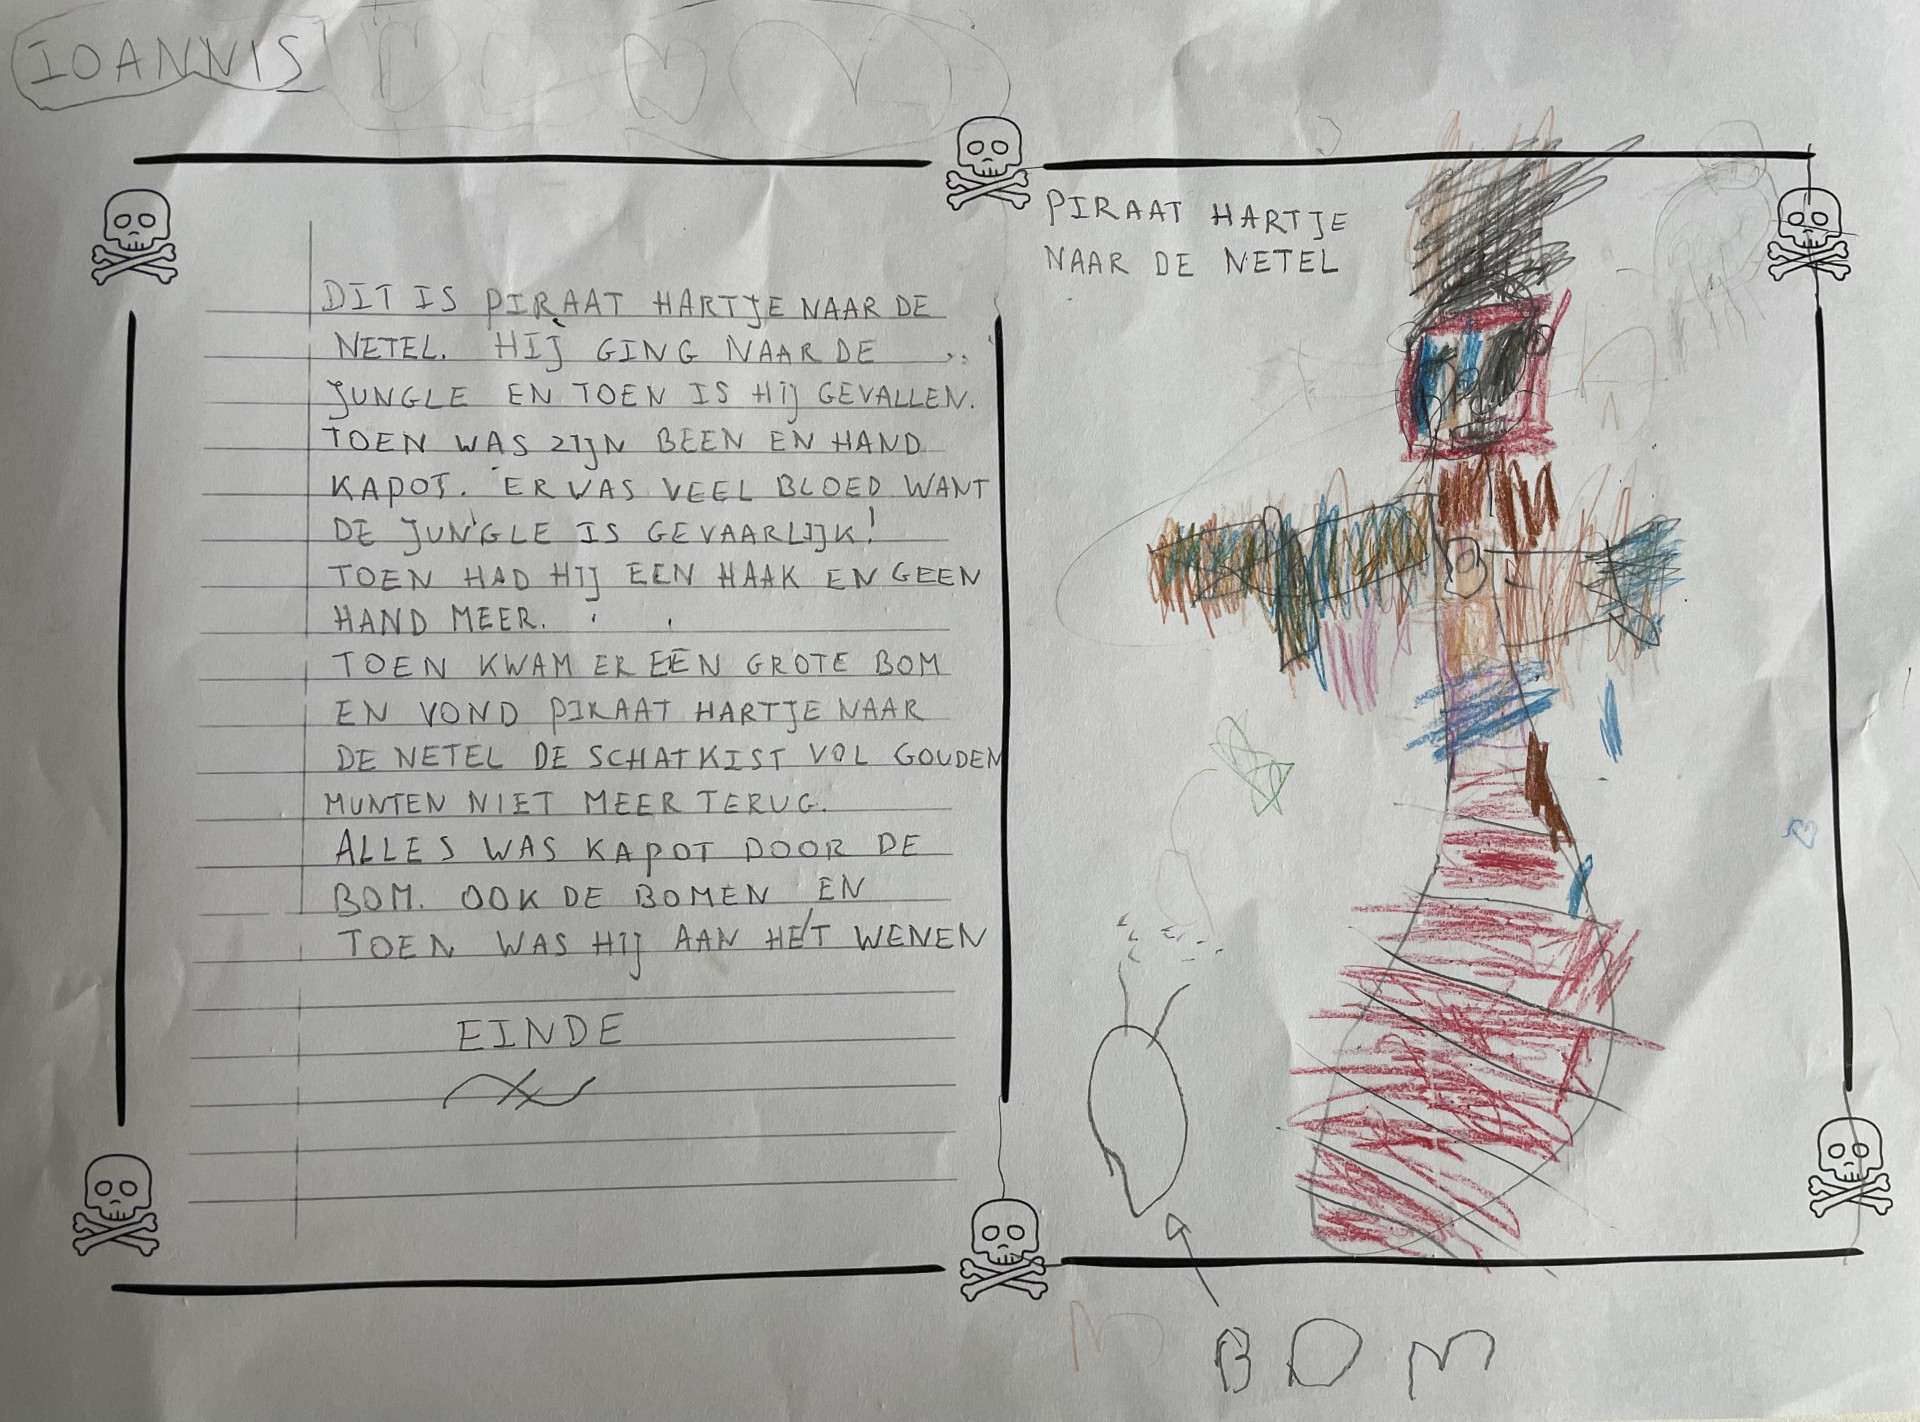 IOANNIS
DIT IS PIRAAT HARTJE NAAR DE
NETEL. HIJ GING NAAR DE
JUNGLE EN TOEN IS HIJ GEVALLEN.
TOEN WAS ZIJN BEEN EN HAND
KAPOT. ER WAS VEEL BLOED WANT
DE JUNGLE IS GEVAARLIJK!
TOEN HAD HIJ EEN HAAK EN GEEN
HAND MEER.
TOEN KWAM ER EEN GROTE BOM
EN VOND PIRAAT HARTJE NAAR
DE NETEL DE SCHATKIST VOL GOUDEN
MUNTEN NIET MEER TERUG.
ALLES WAS KAPOT DOOR DE
BOM. OOK DE BOMEN EN
TOEN WAS HIJ AAN HET WENEN
EINDE
PIRAAT HARTJE
NAAR DE NETEL
BOM